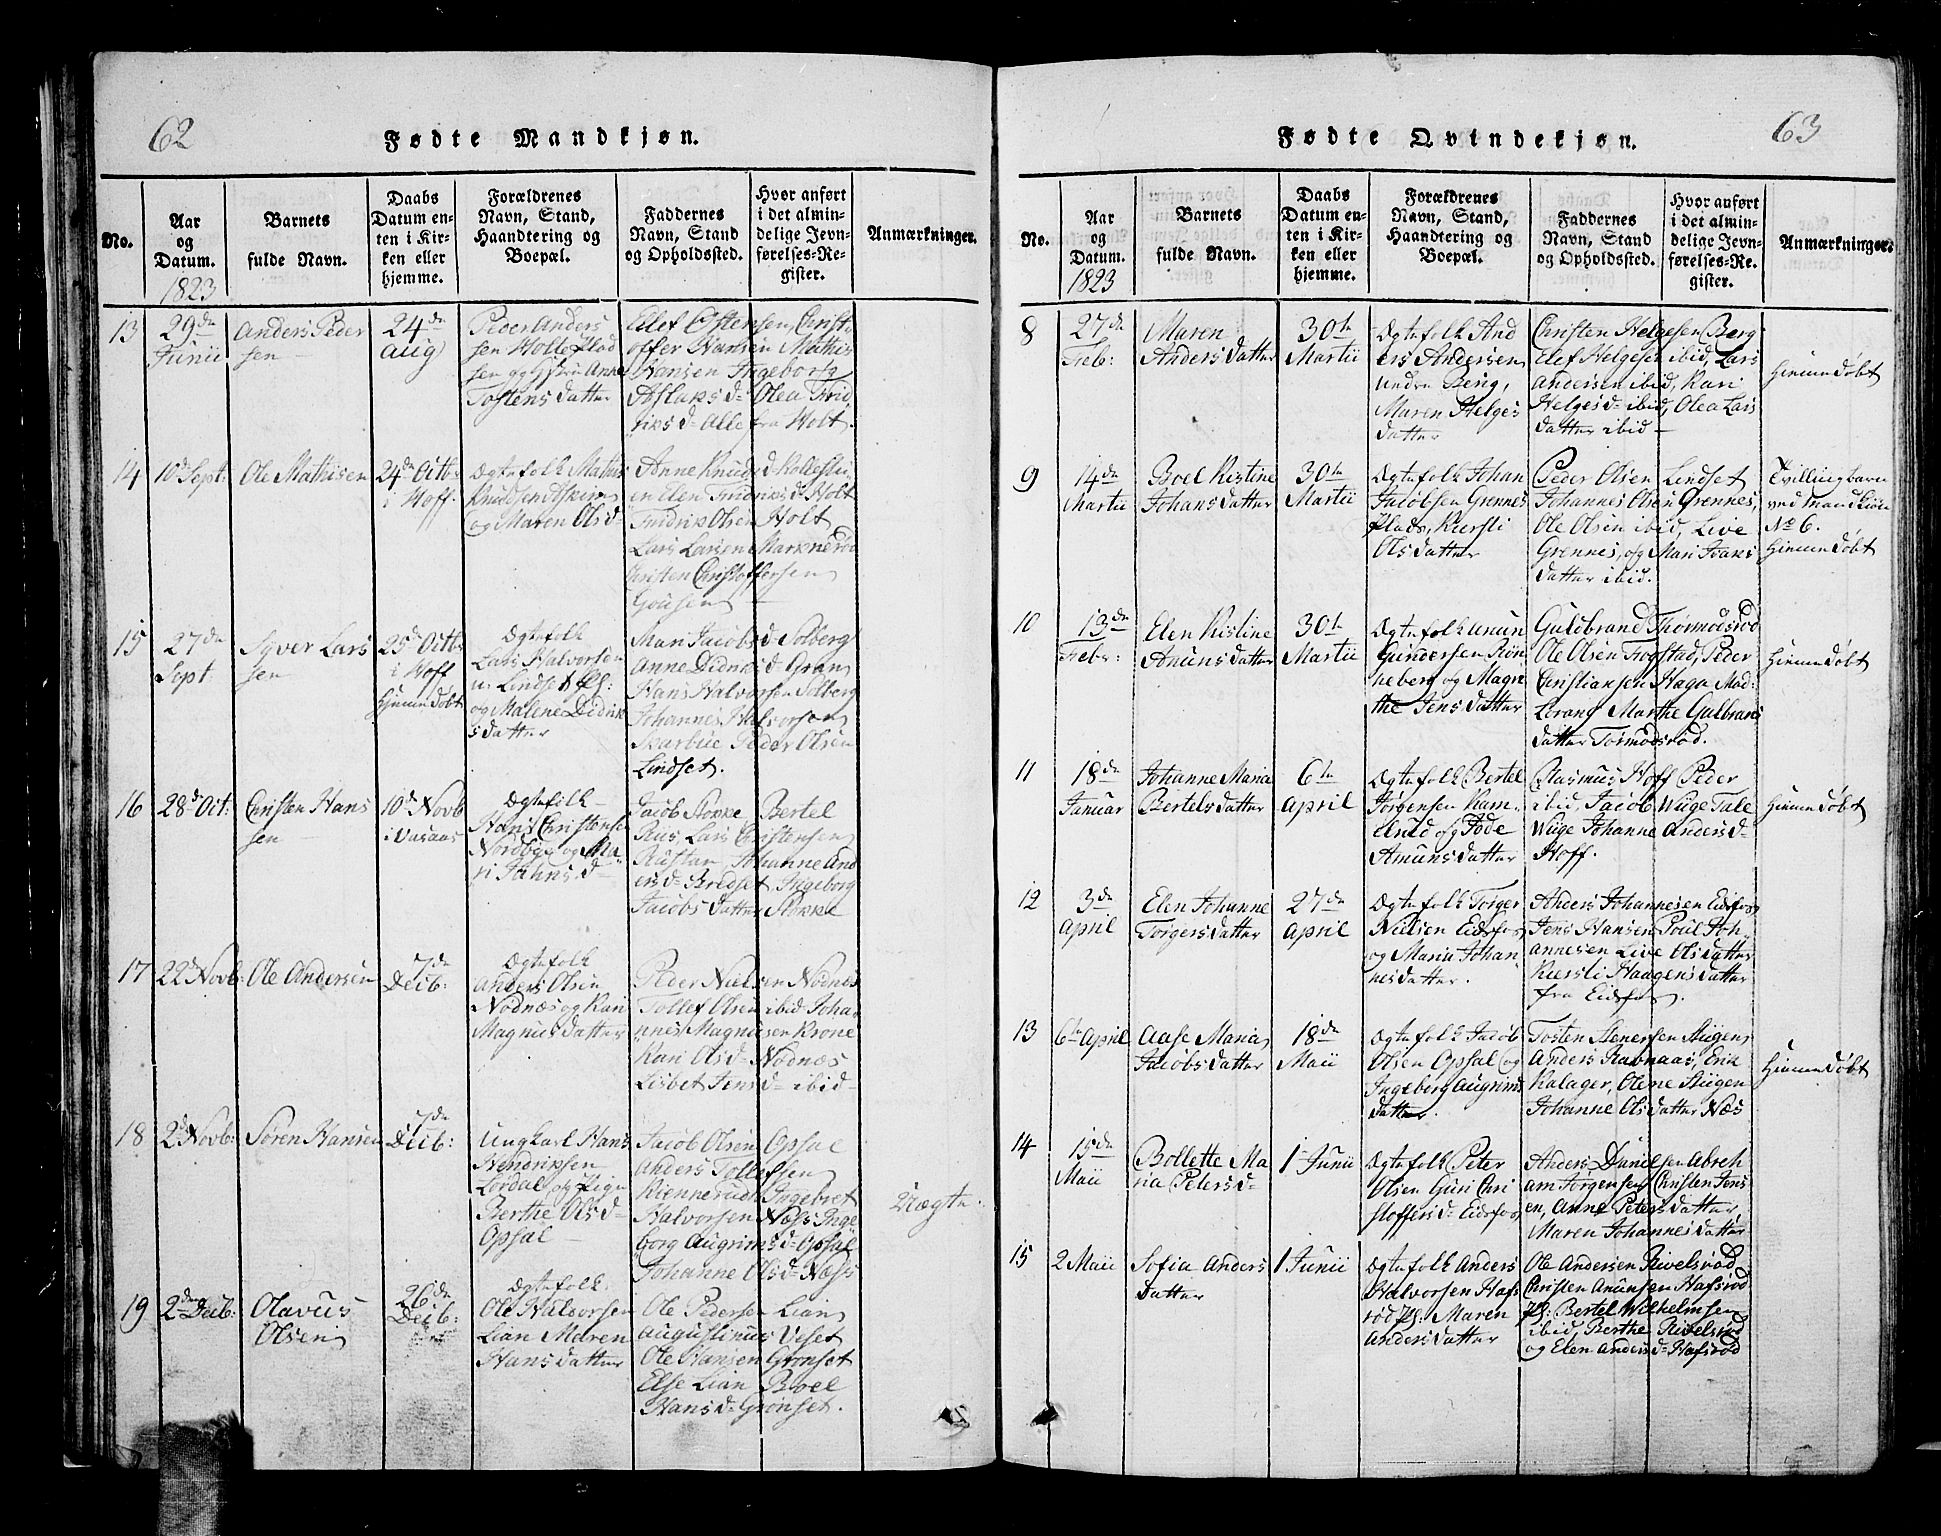 62
Fødte Mandkjøn.
No.
Aar
og
Datum.
1823
Barnets
fulde Navn.
Daabs
Datum en-
ten i Kir-
ken eller
hjemme.
Forældrenes
Navn, Stand,
Haandtering og
Boepæl.
Faddernes
Navn, Stand
og Opholdssted.
Hvor anført
i det almin-
delige Jevn-
førelses-Re-
gister.
Anmærkninger.
13
29de
Junii
Anders Peder
sen
24de
Aug
Peder Anders
sen Holte Plad
sen og Anne
Tostens datter
Ellef Ostensen, Christ
offer Hansen Mathis
Hansen Ingeborg
Aslaks d= Olea Frid
riks d= Alle fra Holt.
14
10d Sept:
Ole Mathisen
24de Octb:
i Hoff.
Ægtefolk Mathis
Knudsen
og Maren Ols d=
Anne Knuds d=
en Elen Fridriks d= Holt
Fridrik Olsen Holt
Lars Larsen
Christen Christoffersen
15
27de
Sept:
Syver Lars
sen
25d Octb:
i Hoff
Hiemme døbt
Ægtefolk
Lars Halvorsen
Lindset
og Malene Didrik
s datter
Mari Jacobs d= Solberg
Anne
Hans Halvorsen Solberg
Johannes Halvorsen
Skarbue Peder Olsen
Lindset.
16
28d Oct:
Christen Hans
sen
10d Novb
i Vasaas
Ægtefolk
Hans Christense
Nordbye og Ma-
ri Jahns d=
Jacob Stokke, Bertel
Rus, Lars Christensen
Rustan, Johanne And
ers d= Bredset Ingeborg
Jacobs datter Stokke
17
22d Novb:
Ole Andersen
7de
Decb:
Ægtefolk
Anders Olsen
Nødnæs og Kari
Magnus datter
Peder Nielsen Nødnæs
Tollef Olsen ibid Joha
nnes Magnusen Krone
Kari Ols d= Nødnæs
Lisbet Jens d= ibid-
18
2d Novb:
Søren Hansen
7de
Decb:
Ungkarl Hans
Hendriksen
Lørdal og Pige
Berthe Ols d=
Opsal
Jacob Olsen Opsal
Anders Tollefsen
Kiennerud Ingebret
Halvorsen Næss Inge
borg Augrims d= Opsal
Johanne Ols d= Næss
Uægte:
19
2den Decb:
Olavus
Olsen
26de
Decb:
Ægtefolk
Ole Halvorsen
Lian Maren
Hans datter
Ole Pedersen Lian
Augustinus Veset
Ole Hansen Grønset
Else Lian Boel
Hans d= Grønset.
63
Fødte Qvindekjøn.
No.
Aar
og
Datum.
1823
Barnets
fulde Navn.
Daabs
Datum en-
ten i Kir-
ken eller
hjemme.
Forældrenes
Navn, Stand,
Haandtering og
Boepæl.
Faddernes
Navn, Stand
og Opholdssted.
Hvor anført
i det almin-
delige Jevn-
førelses-Re-
gister.
Anmærkninger.
8
27de
Febr:
Maren
Anders datter
30te
Martii
Ægtefolk And
ers Andersen
undre Berg,
Maren Helges
datter
Christen Helgesen Berg
Elef Helgesen ibid, Lars
Andersen ibid, Kari
Helges d= ibid, Olea Lars
datter ibid
Hiemme døbt
9
14de
Martii
Boel Kistine
Johans datter
30te
Martii
Ægtefolk Johan
Jacobsen Grennes
plads, Kiersti
Ols datter
Peder Olsen Lindset
Johannes Olsen Grennes,
Ole Olsen ibid, Live
Grennes, og Mari Ivars
datter ibid.
Tvillingbarn
ved mandkiøn
No 6.
Hiemme døbt
10
13de
Febr:
Elen Kistine
Amuns datter
30te
Martii
Ægtefolk Amun
Gundersen Røn
neberg og Magre
the Jens datter
Guldbrand Thormodsrød
Ole Olsen Frogstad, Peder
Christiansen Haga Mad:
Lorang Marthe Gulbrans
datter Tormodsrød.
Hiemme døbt
11
18de
Januar
Johanne Maria
Bertels datter
6te
April
Ægtefolk Bertel
Jørgensen Ram-
og Tode
Amuns datter
Rasmus Hoff Peder
ibid, Jacob Wiige Tale
Wiige Johanne Anders d=
Hoff.
Hiemme døbt
12
3de
April
Elen Johanne
Torgers datter
27de
April
Ægtefolk Torger
Nielsen Eidsfos
og Marie Johan
nes datter.
Anders Johannesen Eidsfos,
Jens Hansen Poul Joh-
annesen Live Ols datter
Kiersti Haagens datter
fra Eidsfos.
13
6te April
Aase Maria
Jacobs datter
18de
Maii
Ægtefolk Jacob
Olsen Opsal og
Ingeborg Augrims
datter.
Tosten Stenersen Stigen,
Anders Ravnaas, Erik
Kalager, Olene Stigen
Johanne Ols datter Næs
Hiemme døbt
14
15de
Maii
Bollette Ma
ria Peters d=
1 Junii
Ægtefolk Peter
Olsen Guri Chri
stoffers d= Eidsfos,
Anders Danielsen Abreh
am Jørgensen Christen Jens
en, Anne Peters datter
Maren Johannes datter
15
2 Maii
Sofia Anders
datter
1 Junii
Ægtefolk Anders
Halvorsen Hafs
rød Pl: Maren
Anders datter
Ole Andersen Rivelsrød
Christen Amunsen Hafsrød
Pl: Bertel Wilhelmsen
ibid, Berthe Rivelsrød
og Elen Anders d= Hafsrød